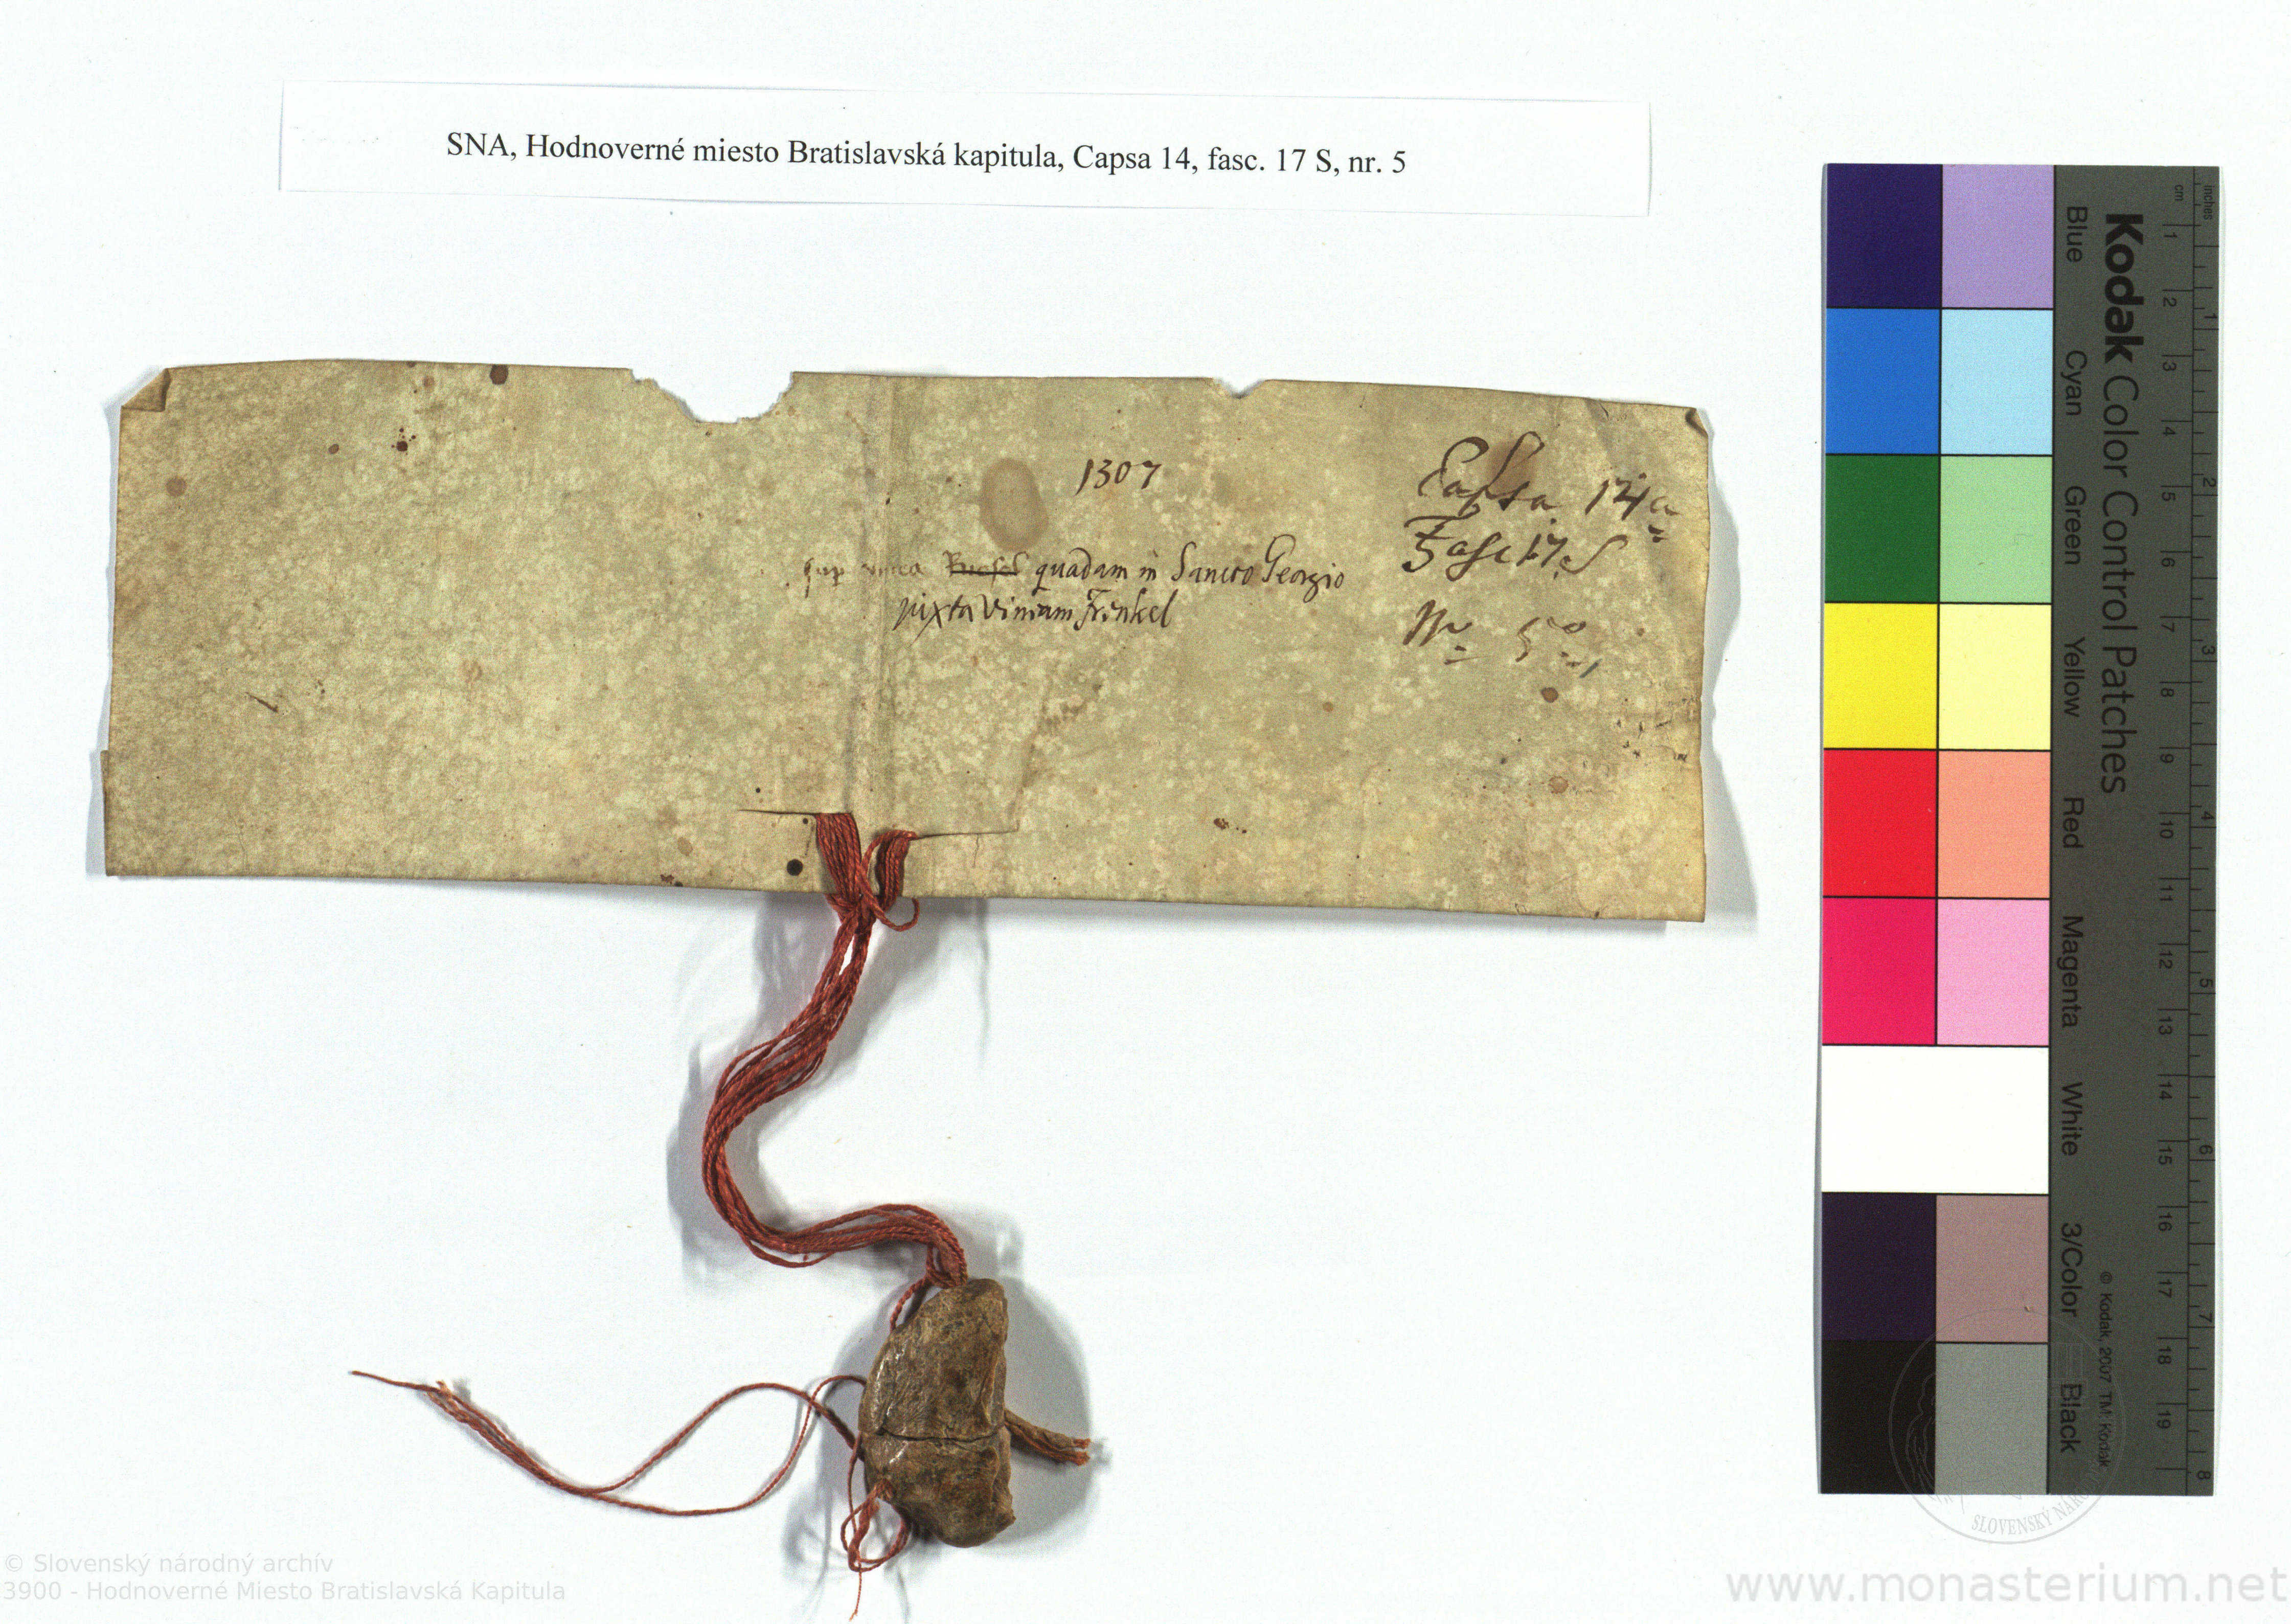 SNA, Hodnoverné miesto Bratislavská kapitula, Capsa 14, fasc. 17 S, nr. 5
1307
Capsa 14a
Fasc 17. S
Nr 5o
sup vinea quadam in Sancto Georgio
juxta Vineam Frenkel
Kodak Color Control Patches
Blue Cyan Green Yellow Red Magenta White 3/Color Black
inches 1 2 3 4 5 6 7 8
cm 1 2 3 4 5 6 7 8 9 10 11 12 13 14 15 16 17 18 19
© Kodak, 2007 TM: Kodak
SLOVENSKÝ NÁRO
© Slovenský národný archív
3900 - Hodnoverné Miesto Bratislavská Kapitula
www.monasterium.net